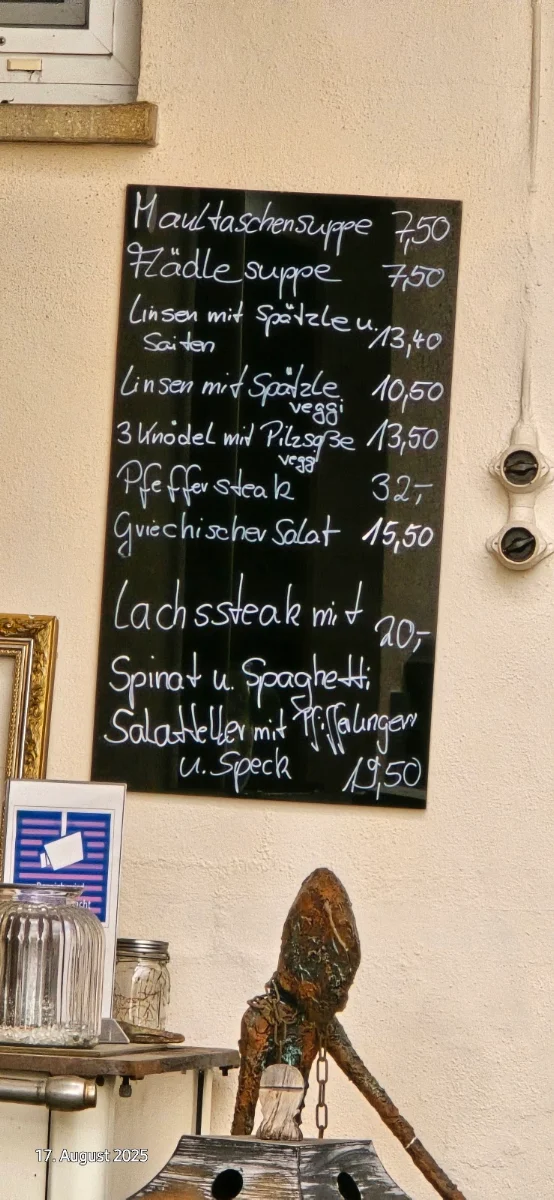 Maultaschensuppe 7,50
Flädle suppe 7,50
Linsen mit Spätzle u.
Saiten 13,40
Linsen mit Spätzle 10,50
veggi
3 Knödel mit Pilzsoße 13,50
veggi
Pfeffersteak 32,-
Griechischer Salat 15,50
Lachssteak mit 20,-
Spinat u. Spaghetti
Salatteller mit Pfifferlingen
u. Speck 19,50
17. August 2025